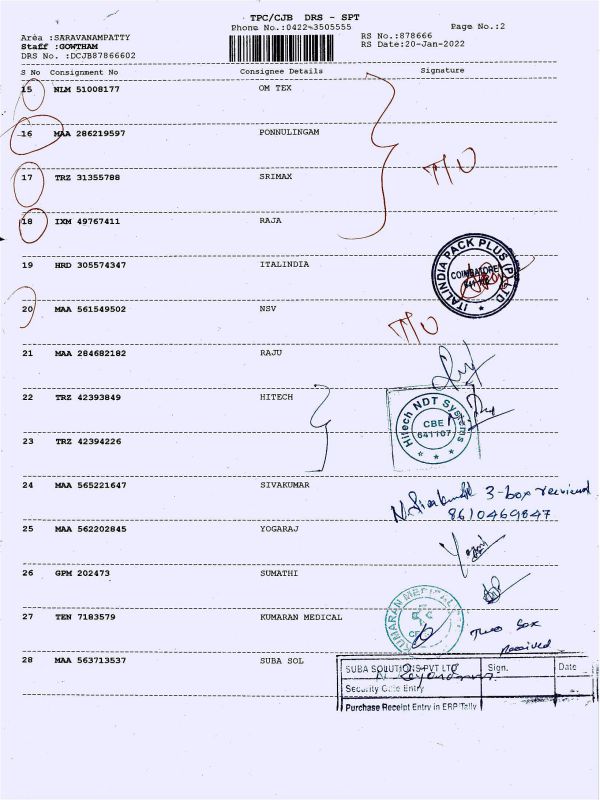 TPC/CJB DRS - SPT
Phone No.:0422-3505555
Page No.:2
Area :SARAVANAMPATTY
RS No.:878666
Staff :GOWTHAM
RS Date:20-Jan-2022
DRS No. :DCJB87866602
S No Consignment No Consignee Details Signature
15 NLM 51008177 OM TEX
16 MAA 286219597 PONNULINGAM
17 TRZ 31355788 SRIMAX
T/U
18 IXM 49767411 RAJA
19 HRD 305574347 ITALINDIA
ITALINDIA PACK PLUS (P) LTD
COIMBATORE
20 MAA 561549502 NSV
T/U
21 MAA 284682182 RAJU
22 TRZ 42393849 HITECH
Hitech NDT Systems
CBE
641107
23 TRZ 42394226
24 MAA 565221647 SIVAKUMAR
3-box received
8610469847
25 MAA 562202845 YOGARAJ
26 GPM 202473 SUMATHI
27 TEN 7183579 KUMARAN MEDICAL
KUMARAN MEDICAL
Two box
received
28 MAA 563713537 SUBA SOL
SUBA SOLUTIONS PVT LTD Sign. Date
Security Gate Entry
Purchase Receipt Entry in ERP/Tally